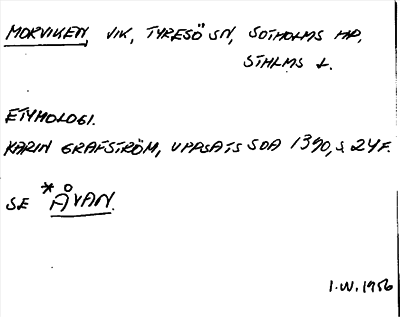 MORVIKEN, VIK, TYRESÖ SN, SOTHOLMS HD,
STHLMS L.
ETYMOLOGI.
KARIN GRAFSTRÖM, UPPSATS SOA 1390, S 24 F.
SE *ÅVAN.
I.W. 1956